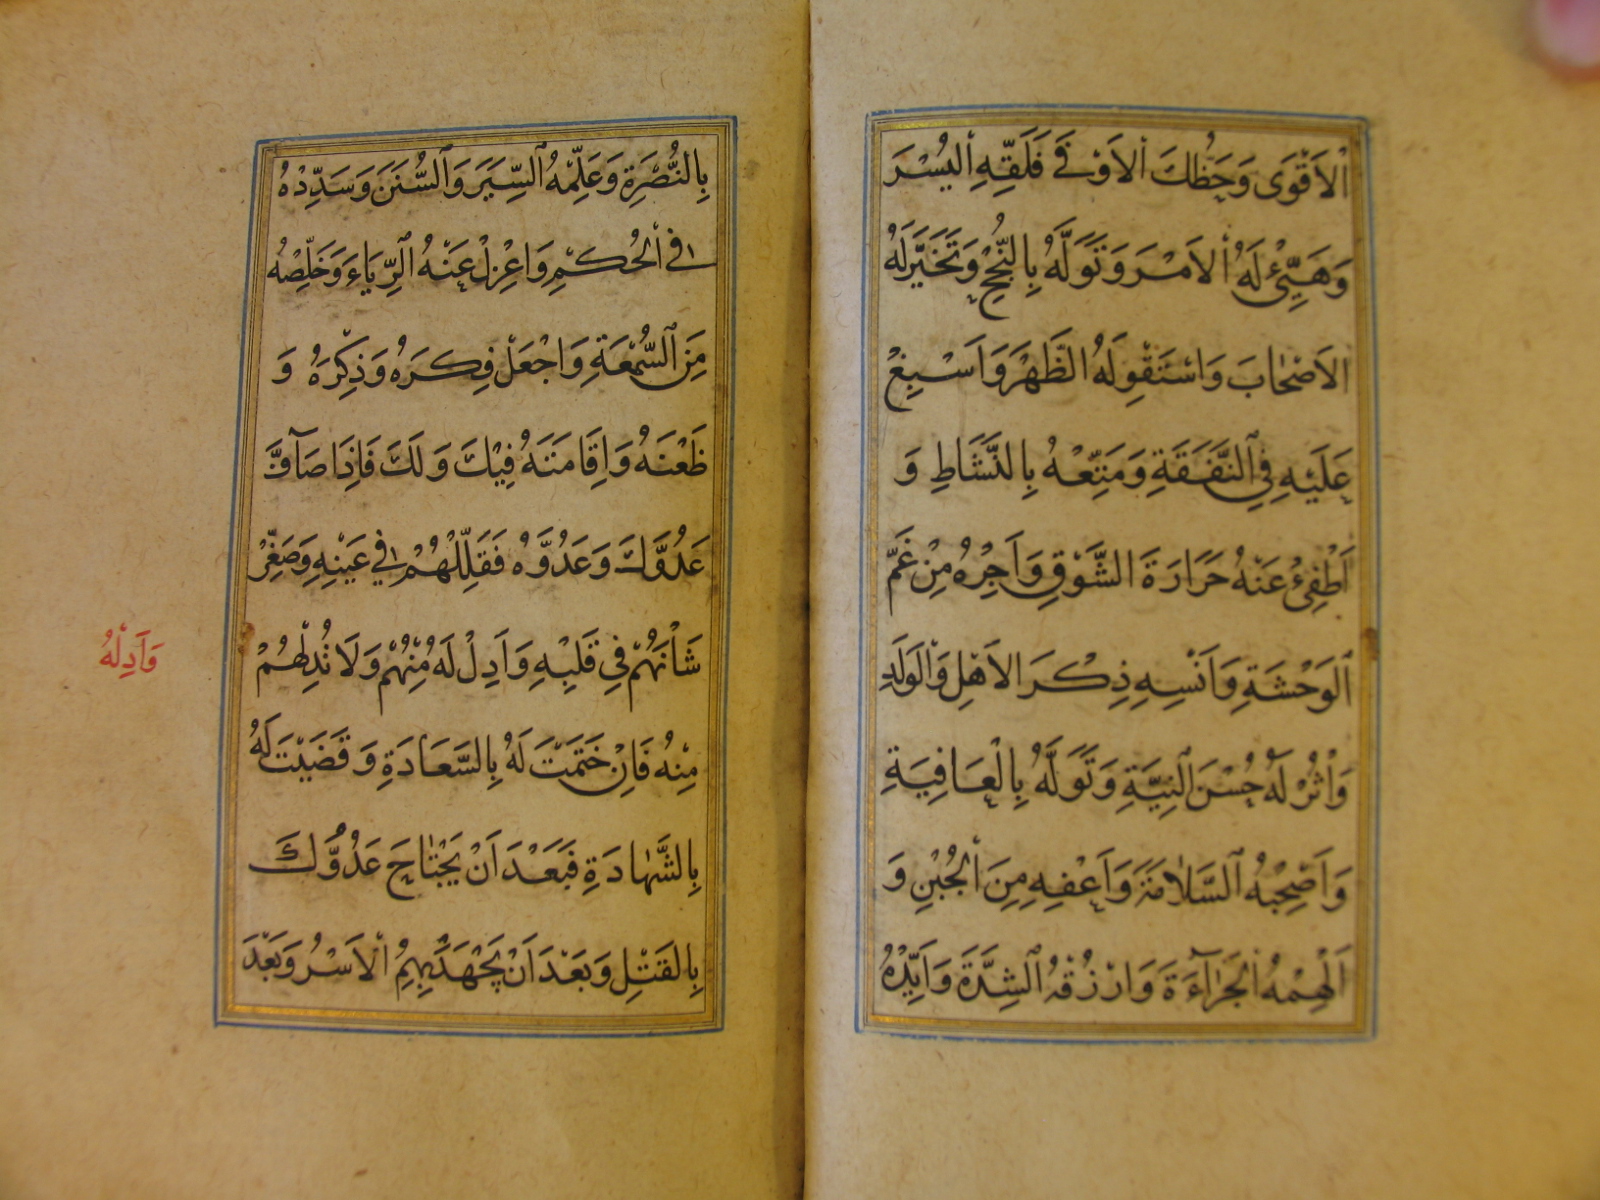 الْاَقْوَى وَحَظِّكَ الْاَوْفَى فَلَقِّهِ الْيُسْرَ
وَهَيِّئْ لَهُ الْاَمْرَ وَتَوَلَّهُ بِالنُّجْحِ وَتَخَيَّرْ لَهُ
الْاَصْحَابَ وَاسْتَقْوِ لَهُ الظَّهْرَ وَاَسْبِغْ
عَلَيْهِ فِي النَّفَقَةِ وَمَتِّعْهُ بِالنَّشَاطِ وَ
اَطْفِئْ عَنْهُ حَرَارَةَ الشَّوْقِ وَاَجِرْهُ مِنْ غَمِّ
الْوَحْشَةِ وَاَنْسِهِ ذِكْرَ الْاَهْلِ وَالْوَلَدِ
وَأْثُرْ لَهُ حُسْنَ النِّيَّةِ وَتَوَلَّهُ بِالْعَافِيَةِ
وَاَصْحِبْهُ السَّلَامَةَ وَاَعْفِهِ مِنَ الْجُبْنِ وَ
اَلْهِمْهُ الْجَرْآءَةَ وَارْزُقْهُ الشِّدَّةَ وَاَيِّدْهُ
بِالنُّصْرَةِ وَعَلِّمْهُ السِّيَرَ وَالسُّنَنَ وَسَدِّدْهُ
فِي الْحُكْمِ وَاعْزِلْ عَنْهُ الرِّيَاءَ وَخَلِّصْهُ
مِنَ السُّمْعَةِ وَاجْعَلْ فِكْرَهُ وَذِكْرَهُ وَ
ظَعْنَهُ وَاِقَامَتَهُ فِيْكَ وَلَكَ فَاِذَا صَآفَّ
عَدُوَّكَ وَعَدُوَّهُ فَقَلِّلْهُمْ فِي عَيْنِهِ وَصَغِّرْ
شَأْنَهُمْ فِي قَلْبِهِ وَاَدِلْ لَهُ مِنْهُمْ وَلَا تُدِلْهُمْ
وَاَدِلْهُ
مِنْهُ فَاِنْ خَتَمْتَ لَهُ بِالسَّعَادَةِ وَقَضَيْتَ لَهُ
بِالشَّهَادَةِ فَبَعْدَ اَنْ يَجْتَاحَ عَدُوَّكَ
بِالْقَتْلِ وَبَعْدَ اَنْ يَجْهَدَ بِهِمُ الْاَسْرُ وَبَعْدَ